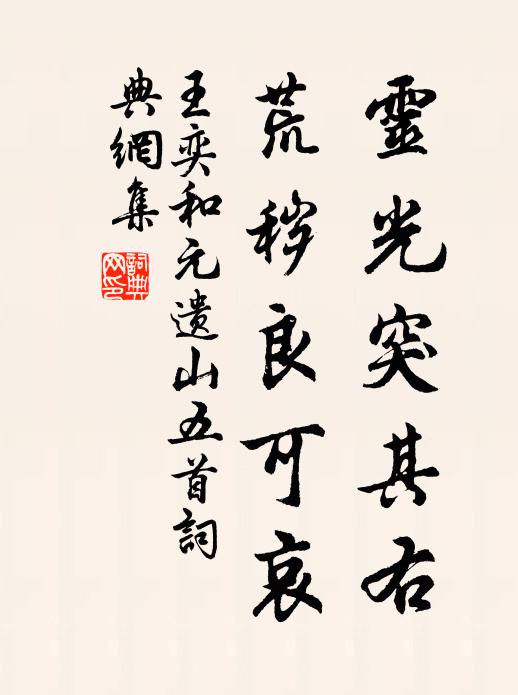 靈光突其右
荒穢良可哀
王奕和元遺山五首詞
典網集
詞典
网印